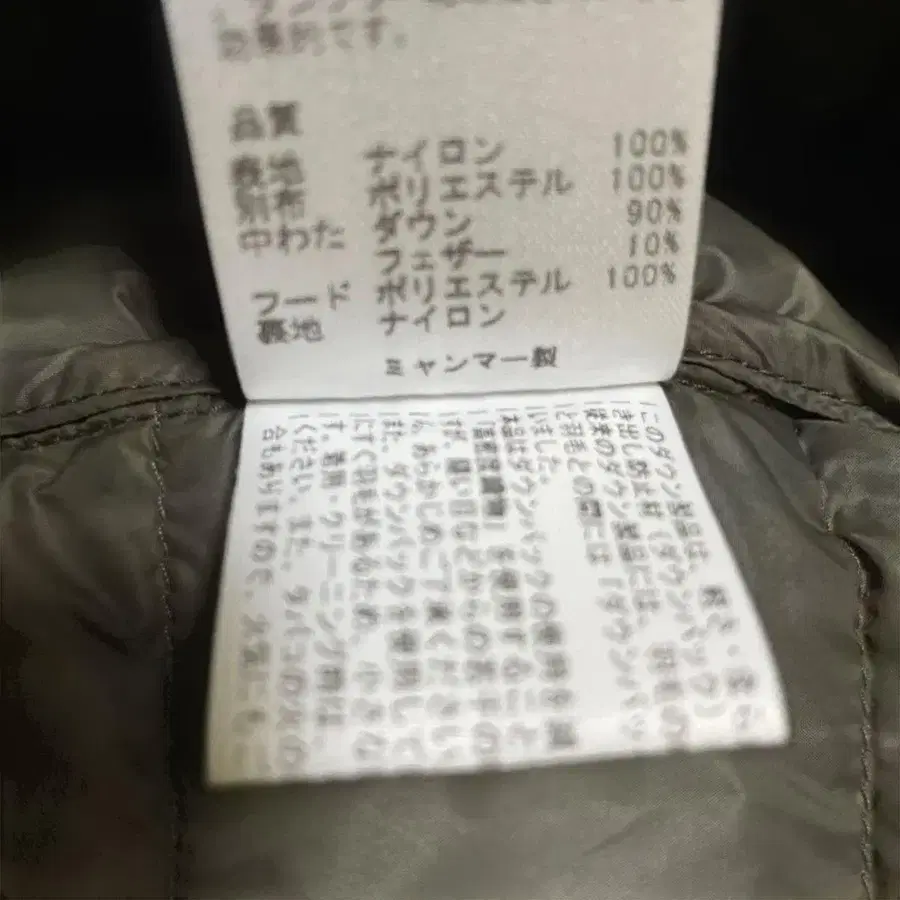 効果的です。
品質
表地 ナイロン 100%
別布 ポリエステル 100%
中わた ダウン 90%
フェザー 10%
フード ポリエステル 100%
裏地 ナイロン
ミャンマー製
このダウン製品は、軽さ・
き出し防止材(ダウンパック)
従来のダウン製品には、羽毛の
と羽毛との間には「ダウンパッ
いました。
本品はダウンパックの使用を減
使用すること
が、縫い目などからの若干の
ん。あらかじめご了承ください
また、ダウンパックを使用して
にすく羽毛があるため、小さな
す。着用・クリーニング時は、
ください。また、タバコの火の
合もありますので、火気にもご